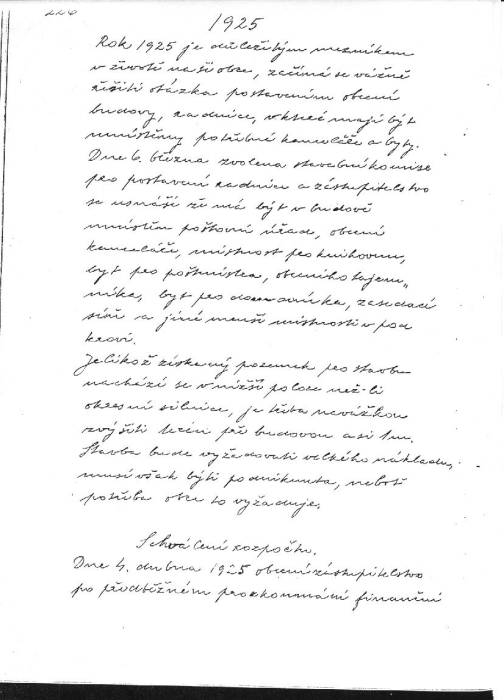 226
1925
Rok 1925 je důležitým mezníkem
v životě naší obce, začíná se vážně
řešiti otázka postavením obecní
budovy, radnice, v které mají být
umístěny potřebné kanceláře a byty.
Dne 6. března zvolena stavební komise
pro postavení radnice a zastupitelstvo
se usnáší že má být v budově
umístěn poštovní úřad, obecní
kanceláře, místnost pro knihovnu,
byt pro poštmistra, obecního tajem„
níka, byt pro domovníka, zasedací
síň a jiné menší místnosti v pod
kroví.
Jelikož získaný pozemek pro stavbu
nachází se v nižší poloze než-li
okresní silnice, je třeba navážkou
zvýšiti terén při budovou asi 1m.
Stavba bude vyžadovati velkého nákladu,
musí však býti podniknuta, neboť
potřeba obce to vyžaduje.
Schválení rozpočtu.
Dne 4. dubna 1925 obecní zastupitelstvo
po předběžném prozkoumání finanční